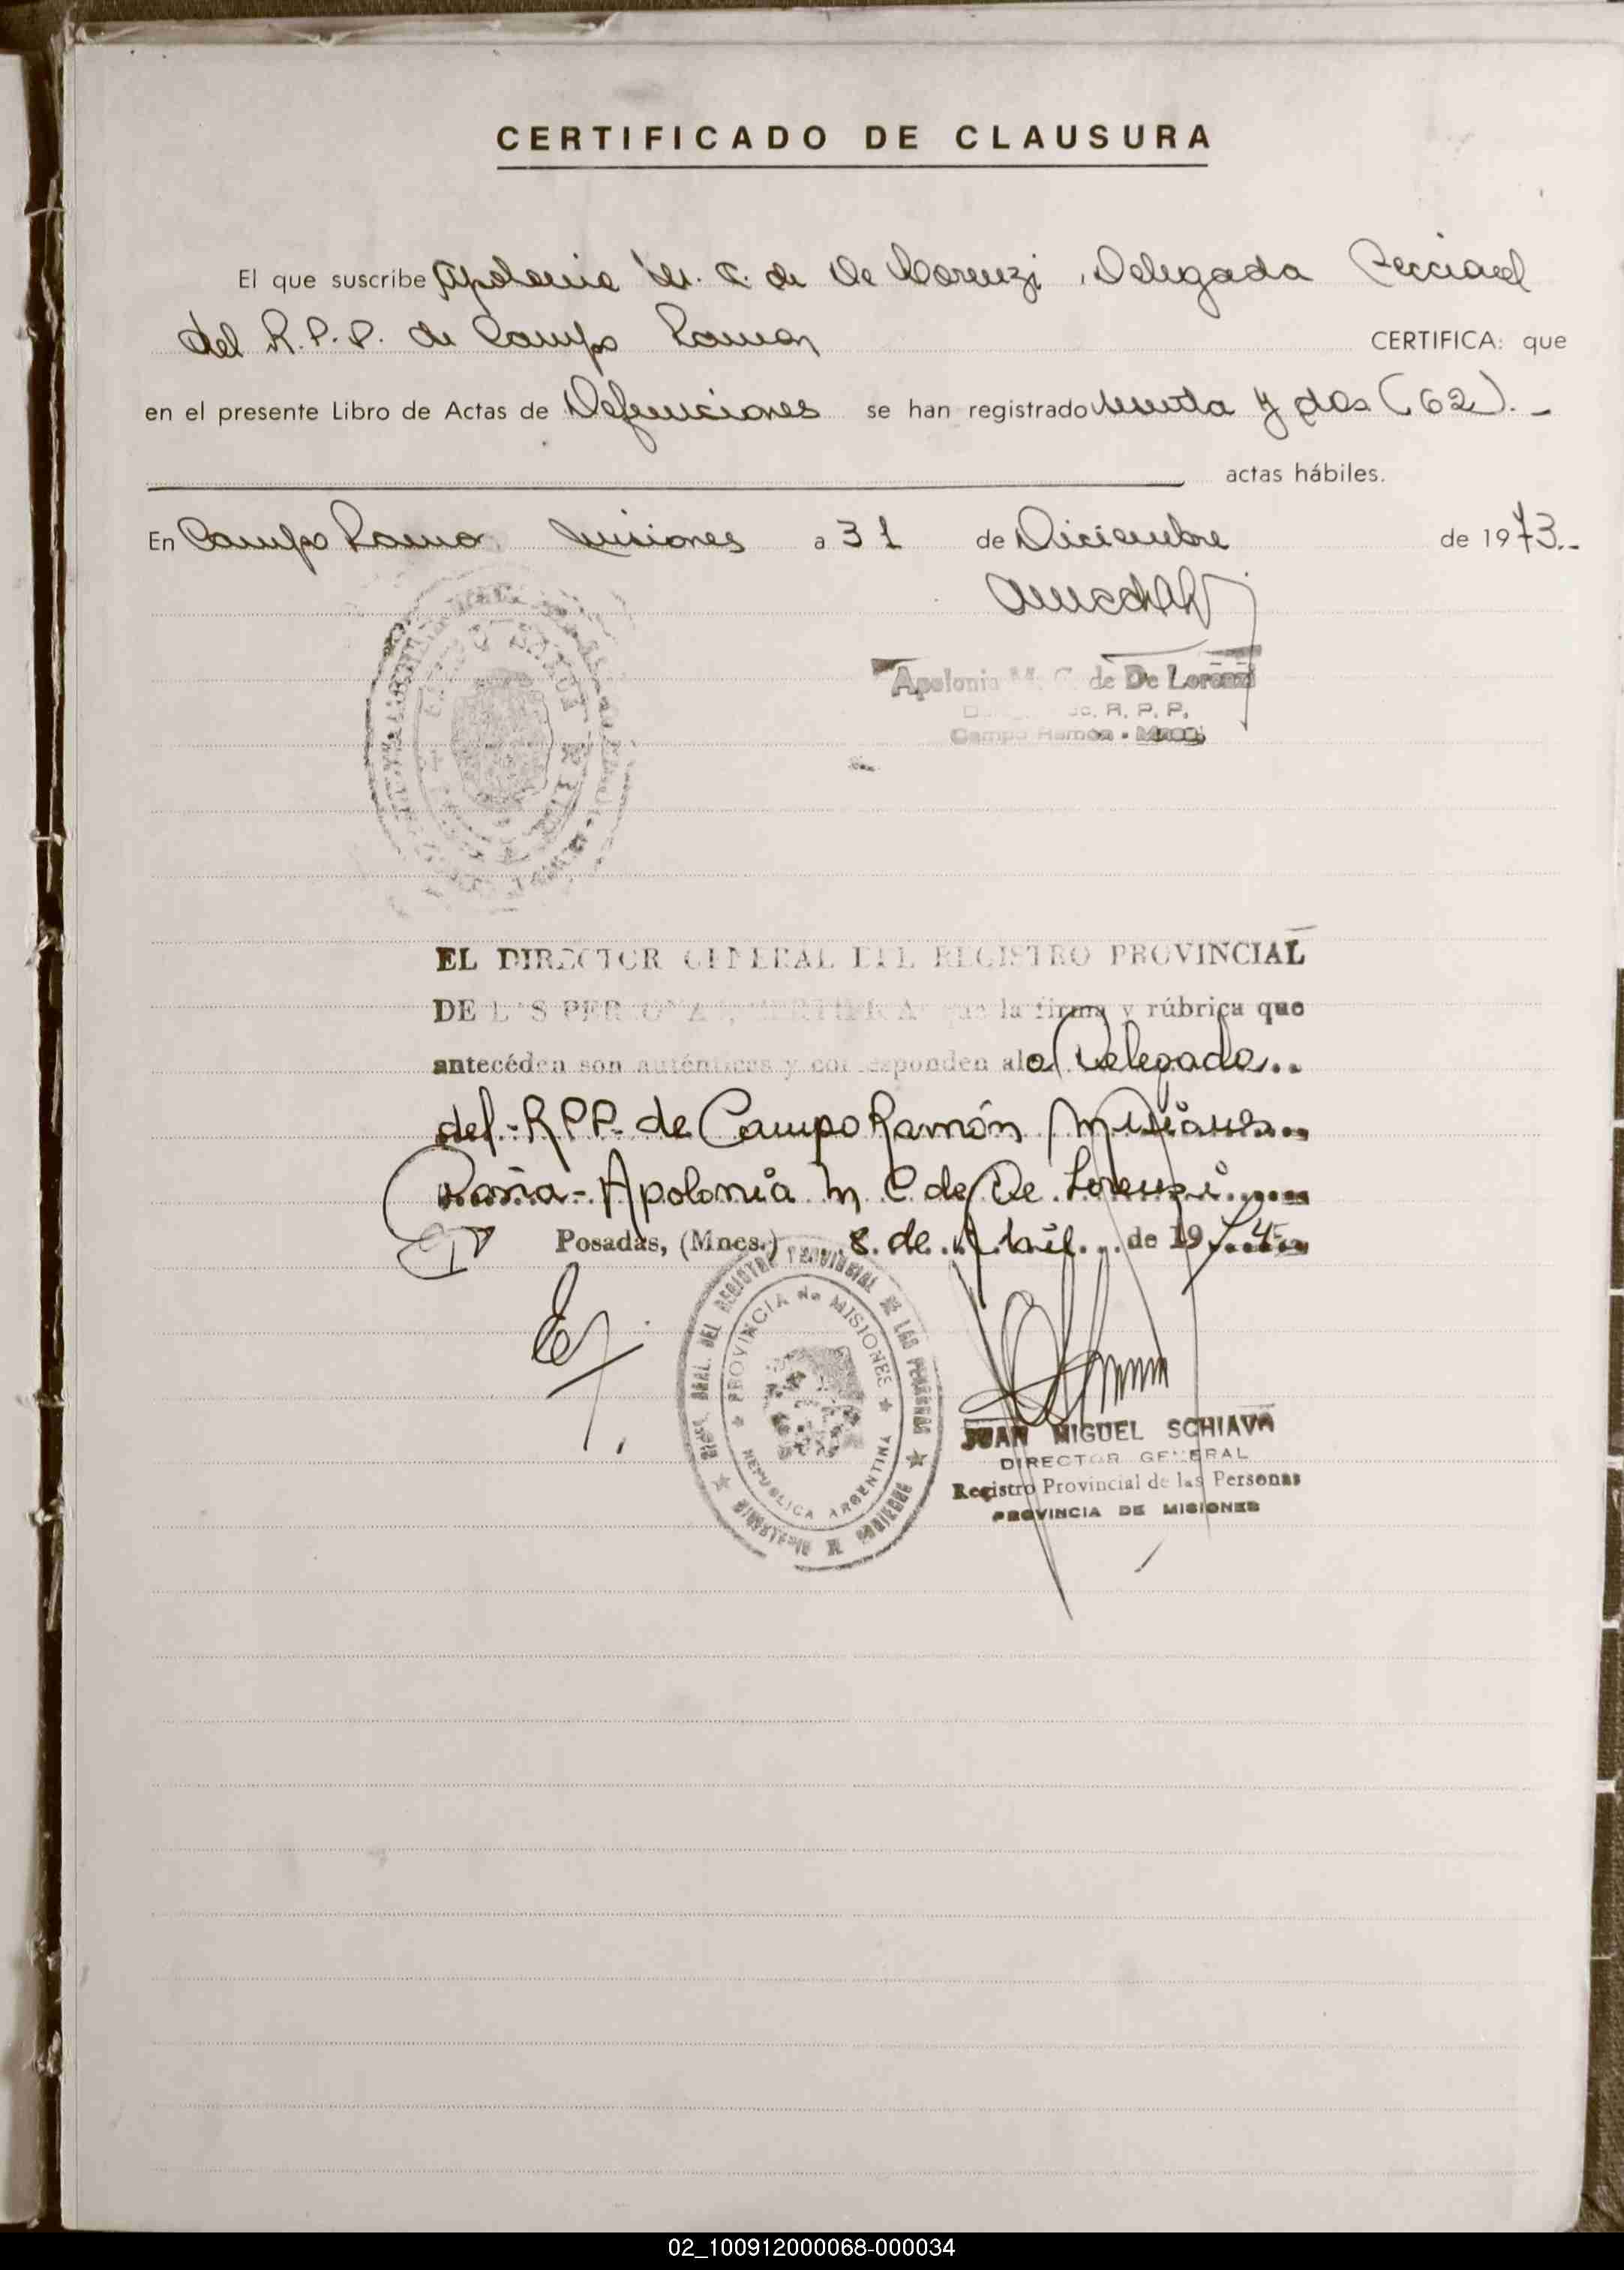 CERTIFICADO DE CLAUSURA
El que suscribe Apolonia M. C. de De Lorenzi, Delegada Seccional
del R.P.P. de Campo Ramon CERTIFICA: que
en el presente Libro de Actas de Defunciones se han registrado y dos (62).-
actas hábiles.
En Campo Ramon Misiones a 31 de Diciembre de 1973.-
Apolonia M. C. de De Lorenzi
R. P. P.
Campo Ramón - Mnes.
EL DIRECTOR GENERAL DEL REGISTRO PROVINCIAL
DE LAS PERSONAS, CERTIFICA: que la firma y rúbrica que
antecéden son auténticas y corresponden a la Delegada..
del.-RPP. de Campo Ramón Misiones...
Doña-Apolonia M C de De Lorenzi.....
Posadas, (Mnes.) 8. de Abril de 1974
DIREC. GRAL. DEL REGISTRO PROVINCIAL DE LAS PERSONAS
PROVINCIA de MISIONES
REPUBLICA ARGENTINA
MINISTERIO DE GOBIERNO
JUAN MIGUEL SCHIAVO
DIRECTOR GENERAL
Registro Provincial de las Personas
PROVINCIA DE MISIONES
02_100912000068-000034